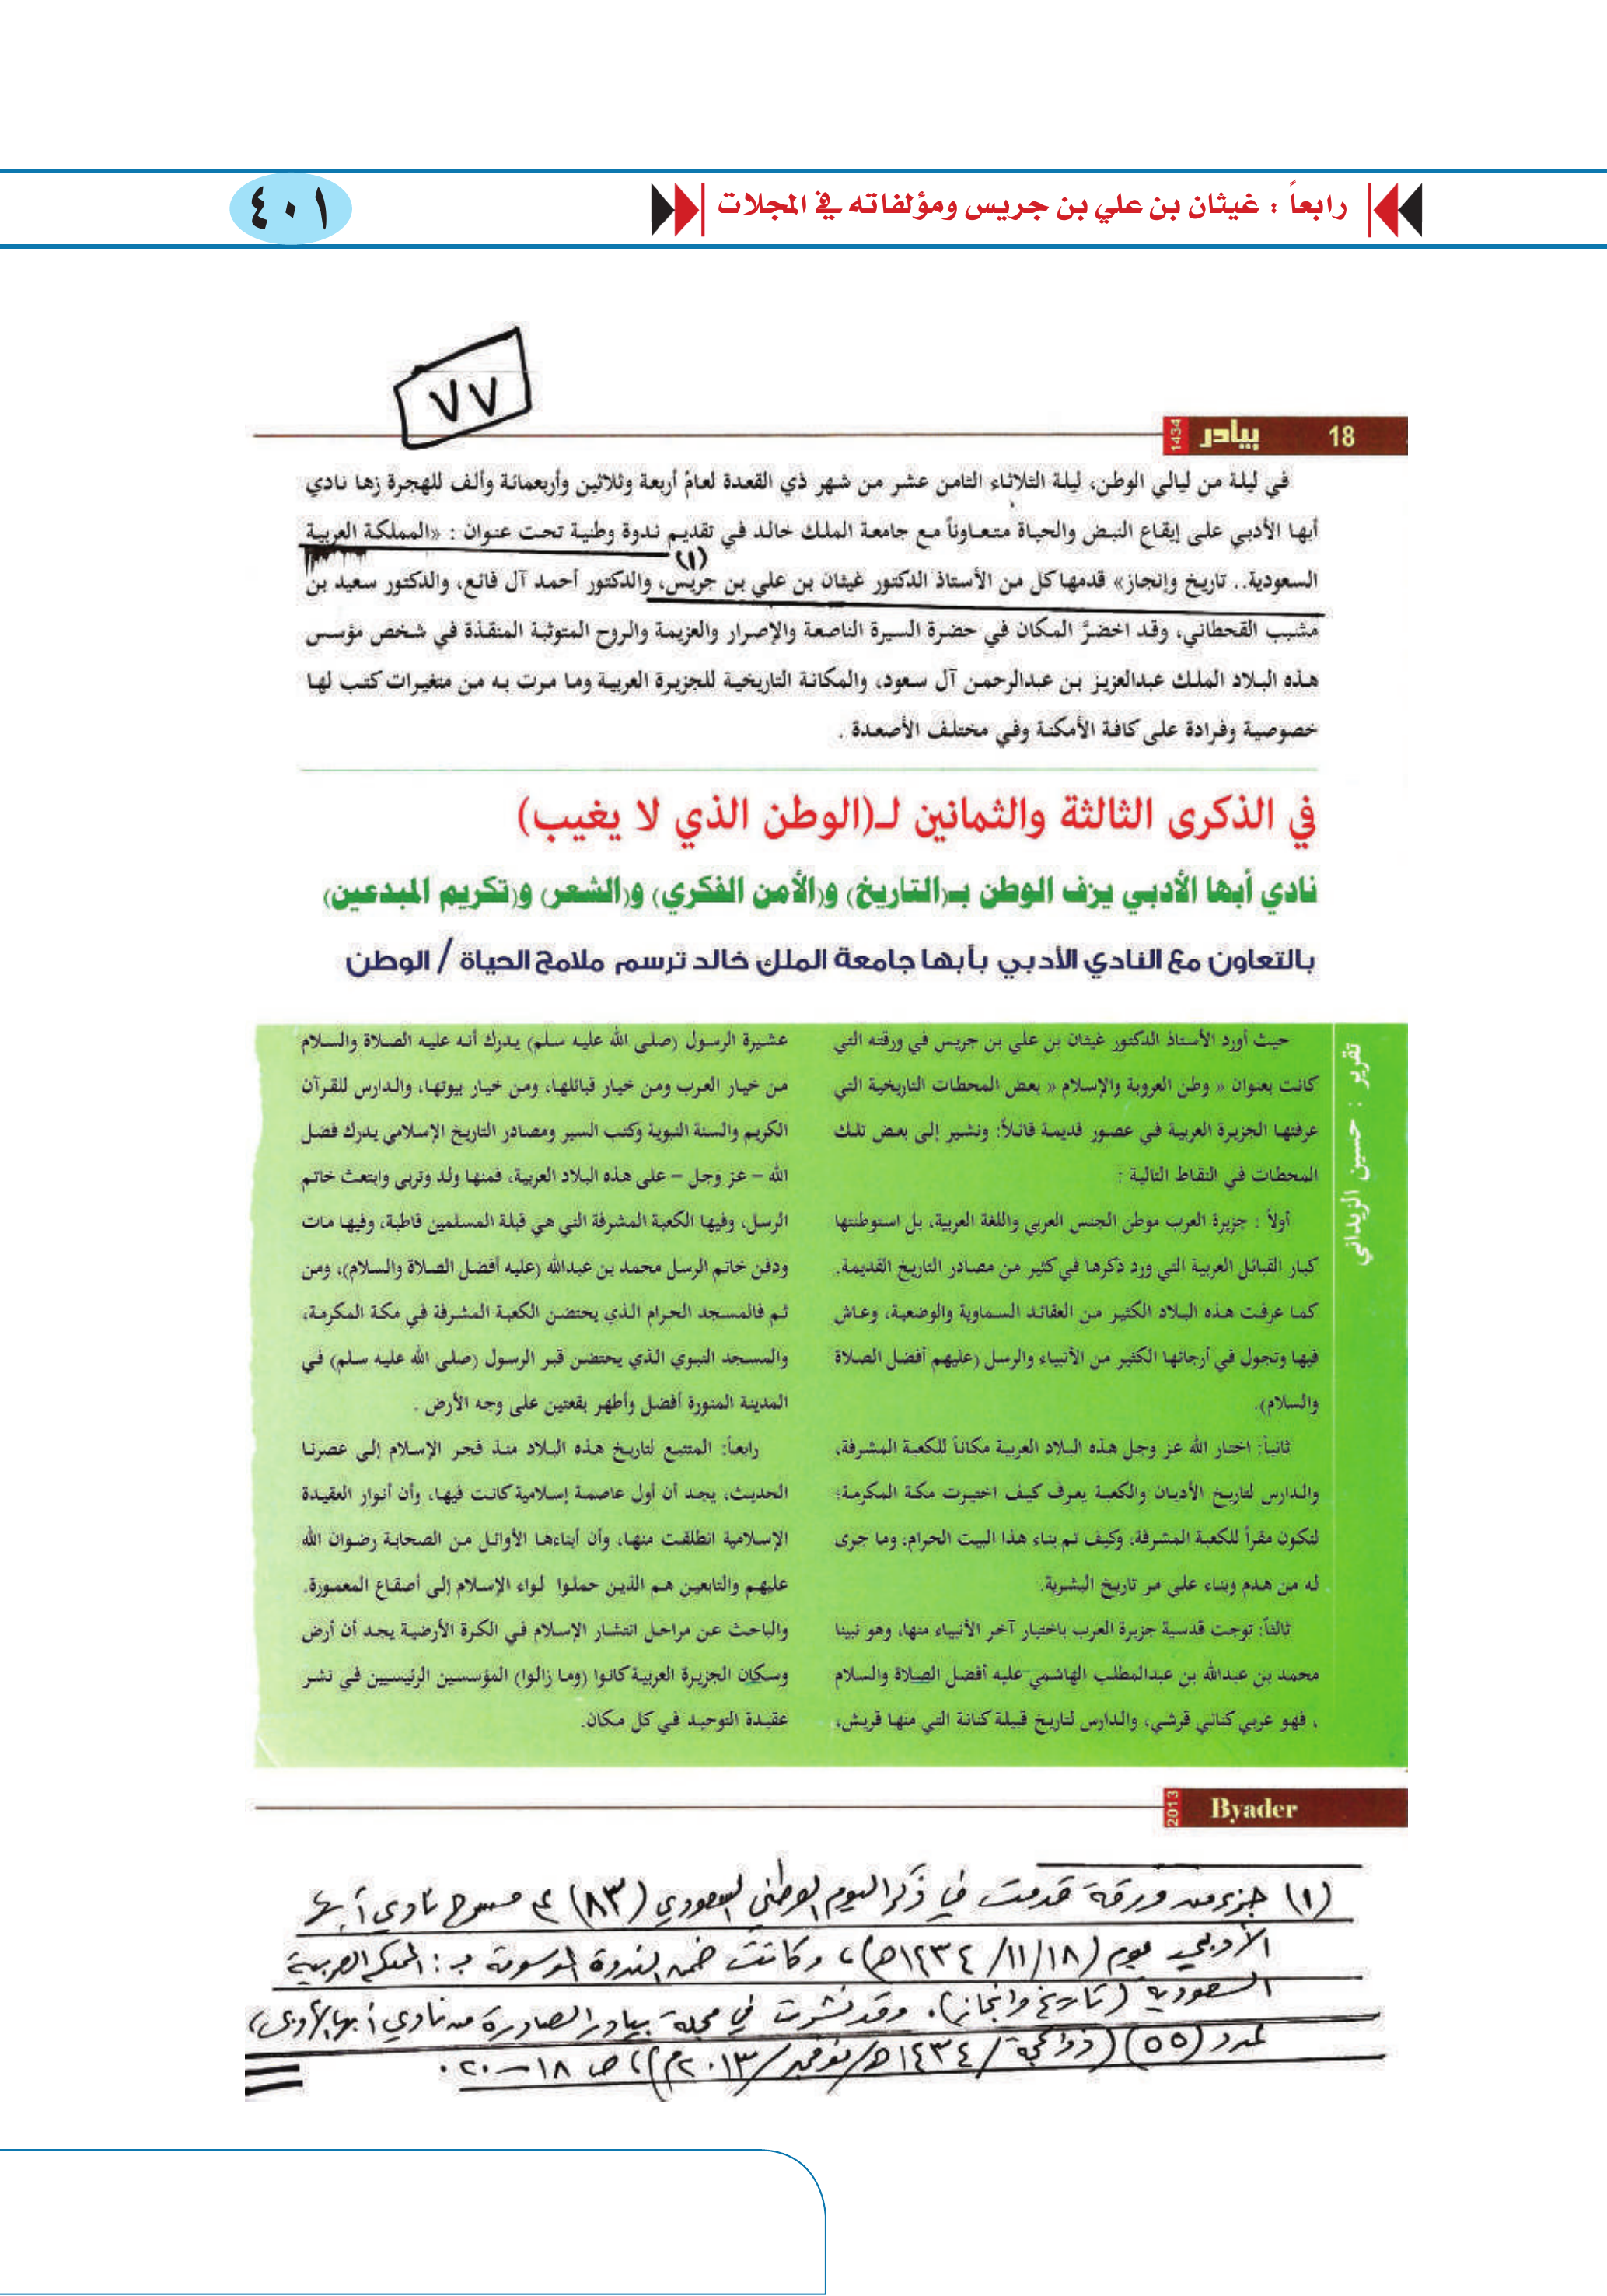 رابعاً : غيثان بن علي بن جريس ومؤلفاته في المجلات
٤٠١
٧٧
18 بيادر 1434
في ليلة من ليالي الوطن، ليلة الثلاثاء الثامن عشر من شهر ذي القعدة لعام أربعة وثلاثين وأربعمائة وألف للهجرة زها نادي
أبها الأدبي على إيقاع النبض والحياة متعاوناً مع جامعة الملك خالد في تقديم ندوة وطنية تحت عنوان : «المملكة العربية
(١)
السعودية.. تاريخ وإنجاز» قدمها كل من الأستاذ الدكتور غيثان بن علي بن جريس، والدكتور أحمد آل فائع، والدكتور سعيد بن
مشبب القحطاني، وقد اخضرَّ المكان في حضرة السيرة الناصعة والإصرار والعزيمة والروح المتوثبة المنقذة في شخص مؤسس
هذه البلاد الملك عبدالعزيز بن عبدالرحمن آل سعود، والمكانة التاريخية للجزيرة العربية وما مرت به من متغيرات كتب لها
خصوصية وفرادة على كافة الأمكنة وفي مختلف الأصعدة .
في الذكرى الثالثة والثمانين لـ(الوطن الذي لا يغيب)
نادي أبها الأدبي يزف الوطن بـ(التاريخ) و(الأمن الفكري) و(الشعر) و(تكريم المبدعين)
بالتعاون مع النادي الأدبي بأبها جامعة الملك خالد ترسم ملامح الحياة / الوطن
تقرير : حسين الزيداني
حيث أورد الأستاذ الدكتور غيثان بن علي بن جريس في ورقته التي
كانت بعنوان « وطن العروبة والإسلام « بعض المحطات التاريخية التي
عرفتها الجزيرة العربية في عصور قديمة قائلاً: ونشير إلى بعض تلك
المحطات في النقاط التالية :
أولاً : جزيرة العرب موطن الجنس العربي واللغة العربية، بل استوطنتها
كبار القبائل العربية التي ورد ذكرها في كثير من مصادر التاريخ القديمة.
كما عرفت هذه البلاد الكثير من العقائد السماوية والوضعية، وعاش
فيها وتجول في أرجائها الكثير من الأنبياء والرسل (عليهم أفضل الصلاة
والسلام).
ثانياً: اختار الله عز وجل هذه البلاد العربية مكاناً للكعبة المشرفة،
والدارس لتاريخ الأديان والكعبة يعرف كيف اختيرت مكة المكرمة؛
لتكون مقراً للكعبة المشرفة، وكيف تم بناء هذا البيت الحرام، وما جرى
له من هدم وبناء على مر تاريخ البشرية.
ثالثاً: توجت قدسية جزيرة العرب باختيار آخر الأنبياء منها، وهو نبينا
محمد بن عبدالله بن عبدالمطلب الهاشمي عليه أفضل الصلاة والسلام
، فهو عربي كناني قرشي، والدارس لتاريخ قبيلة كنانة التي منها قريش،
عشيرة الرسول (صلى الله عليه سلم) يدرك أنه عليه الصلاة والسلام
من خيار العرب ومن خيار قبائلها، ومن خيار بيوتها، والدارس للقرآن
الكريم والسنة النبوية وكتب السير ومصادر التاريخ الإسلامي يدرك فضل
الله – عز وجل – على هذه البلاد العربية، فمنها ولد وتربى وابتعث خاتم
الرسل، وفيها الكعبة المشرفة التي هي قبلة المسلمين قاطبة، وفيها مات
ودفن خاتم الرسل محمد بن عبدالله (عليه أفضل الصلاة والسلام)، ومن
ثم فالمسجد الحرام الذي يحتضن الكعبة المشرفة في مكة المكرمة،
والمسجد النبوي الذي يحتضن قبر الرسول (صلى الله عليه سلم) في
المدينة المنورة أفضل وأطهر بقعتين على وجه الأرض .
رابعاً: المتتبع لتاريخ هذه البلاد منذ فجر الإسلام إلى عصرنا
الحديث، يجد أن أول عاصمة إسلامية كانت فيها، وأن أنوار العقيدة
الإسلامية انطلقت منها، وأن أبناءها الأوائل من الصحابة رضوان الله
عليهم والتابعين هم الذين حملوا لواء الإسلام إلى أصقاع المعمورة.
والباحث عن مراحل انتشار الإسلام في الكرة الأرضية يجد أن أرض
وسكان الجزيرة العربية كانوا (وما زالوا) المؤسسين الرئيسيين في نشر
عقيدة التوحيد في كل مكان.
2013 Byader
(١) جزء من ورقة قدمت في ذكرا اليوم الوطني السعودي (٨٣) على مسرح نادي أبها
الأدبي يوم (١٨/ ١١/ ١٤٣٤هـ)، وكانت ضمن الندوة الموسومة بـ: المملكة العربية
السعودية (تاريخ وإنجاز). وقد نشرت في مجلة بيادر الصادرة من نادي أبها الأدبي،
لعدد (٥٥) (ذو الحجة / ١٤٣٤هـ/ نوفمبر/ ٢٠١٣م)، ص ١٨ – ٢٠.